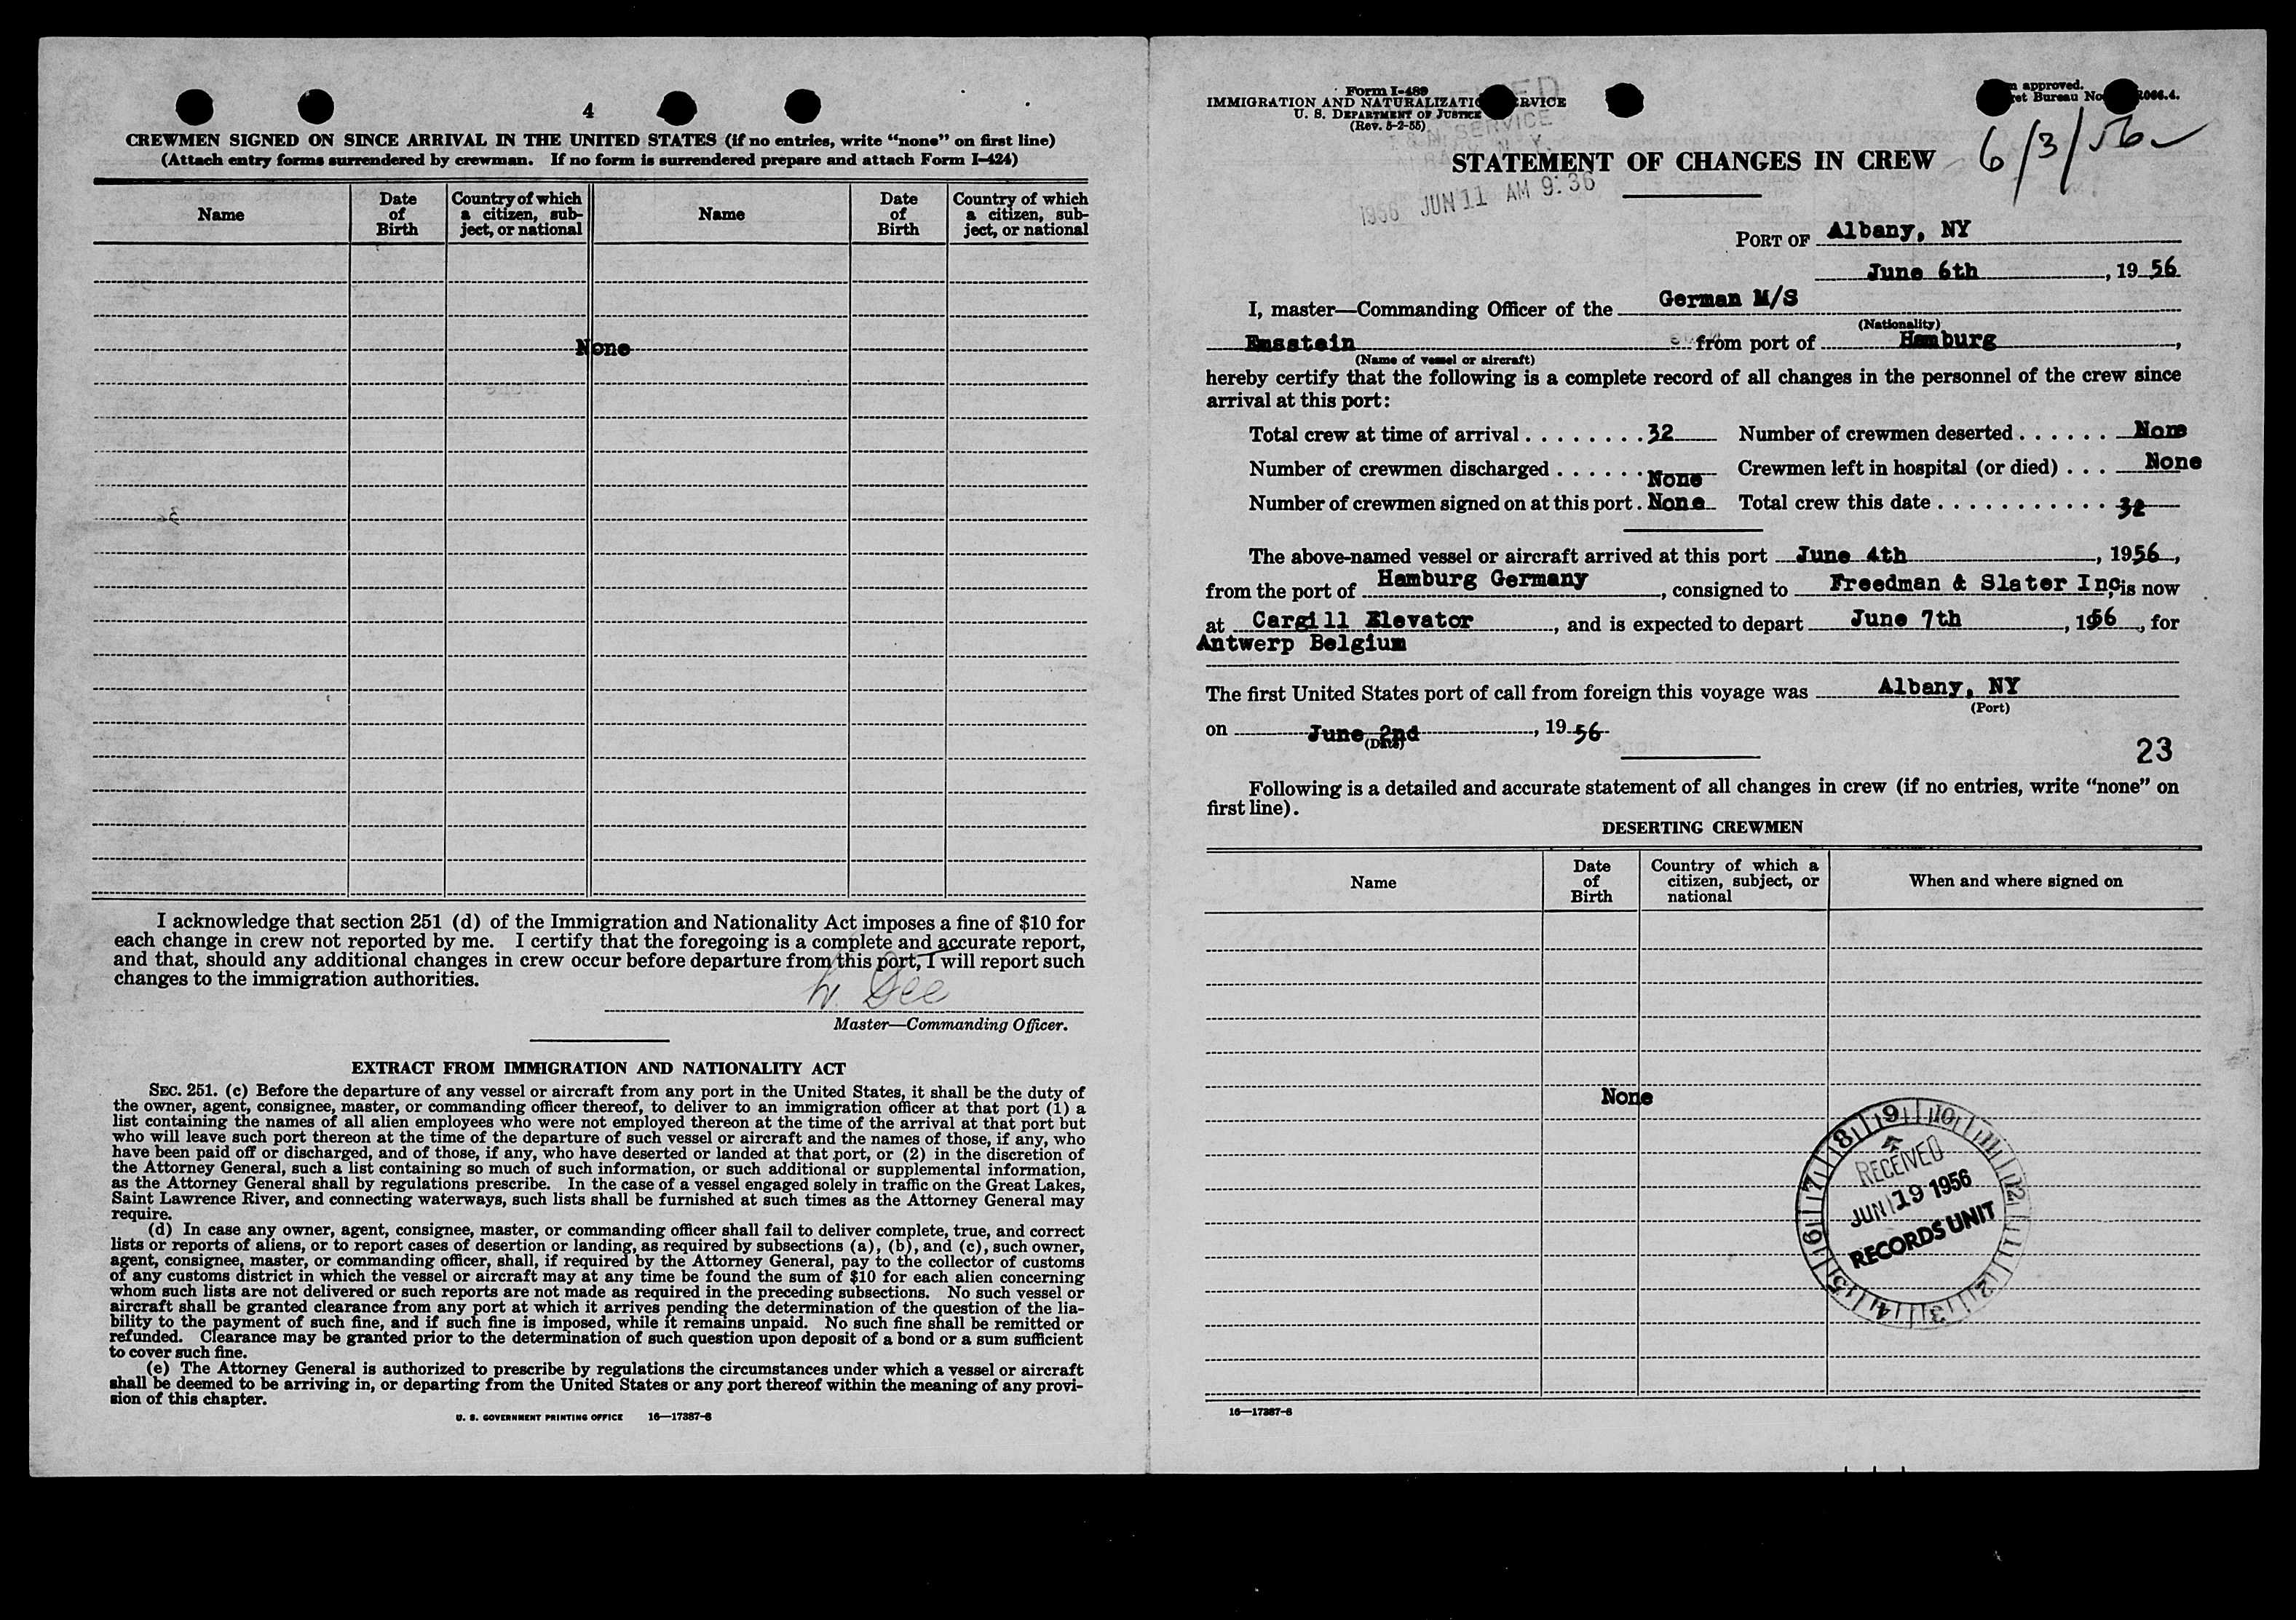 4
CREWMEN SIGNED ON SINCE ARRIVAL IN THE UNITED STATES (if no entries, write “none” on first line)
(Attach entry forms surrendered by crewman. If no form is surrendered prepare and attach Form I-424)
Name Date of Birth Country of which a citizen, subject, or national Name Date of Birth Country of which a citizen, subject, or national
None
I acknowledge that section 251 (d) of the Immigration and Nationality Act imposes a fine of $10 for
each change in crew not reported by me. I certify that the foregoing is a complete and accurate report,
and that, should any additional changes in crew occur before departure from this port, I will report such
changes to the immigration authorities.
Master—Commanding Officer.
EXTRACT FROM IMMIGRATION AND NATIONALITY ACT
SEC. 251. (c) Before the departure of any vessel or aircraft from any port in the United States, it shall be the duty of
the owner, agent, consignee, master, or commanding officer thereof, to deliver to an immigration officer at that port (1) a
list containing the names of all alien employees who were not employed thereon at the time of the arrival at that port but
who will leave such port thereon at the time of the departure of such vessel or aircraft and the names of those, if any, who
have been paid off or discharged, and of those, if any, who have deserted or landed at that port, or (2) in the discretion of
the Attorney General, such a list containing so much of such information, or such additional or supplemental information,
as the Attorney General shall by regulations prescribe. In the case of a vessel engaged solely in traffic on the Great Lakes,
Saint Lawrence River, and connecting waterways, such lists shall be furnished at such times as the Attorney General may
require.
(d) In case any owner, agent, consignee, master, or commanding officer shall fail to deliver complete, true, and correct
lists or reports of aliens, or to report cases of desertion or landing, as required by subsections (a), (b), and (c), such owner,
agent, consignee, master, or commanding officer, shall, if required by the Attorney General, pay to the collector of customs
of any customs district in which the vessel or aircraft may at any time be found the sum of $10 for each alien concerning
whom such lists are not delivered or such reports are not made as required in the preceding subsections. No such vessel or
aircraft shall be granted clearance from any port at which it arrives pending the determination of the question of the lia-
bility to the payment of such fine, and if such fine is imposed, while it remains unpaid. No such fine shall be remitted or
refunded. Clearance may be granted prior to the determination of such question upon deposit of a bond or a sum sufficient
to cover such fine.
(e) The Attorney General is authorized to prescribe by regulations the circumstances under which a vessel or aircraft
shall be deemed to be arriving in, or departing from the United States or any port thereof within the meaning of any provi-
sion of this chapter.
U. S. GOVERNMENT PRINTING OFFICE 16—17387-8
Form I-489
IMMIGRATION AND NATURALIZATION SERVICE
U. S. DEPARTMENT OF JUSTICE
(Rev. 5-2-55)
approved.
Bureau No
6/3/56
STATEMENT OF CHANGES IN CREW
1956 JUN 11 AM 9:36
PORT OF Albany, NY
June 6th, 1956
I, master—Commanding Officer of the German M/S
(Nationality)
Emsstein from port of Hamburg,
(Name of vessel or aircraft)
hereby certify that the following is a complete record of all changes in the personnel of the crew since
arrival at this port:
Total crew at time of arrival 32 Number of crewmen deserted None
Number of crewmen discharged None Crewmen left in hospital (or died) None
Number of crewmen signed on at this port None Total crew this date 32
The above-named vessel or aircraft arrived at this port June 4th, 1956,
from the port of Hamburg Germany, consigned to Freedman & Slater Inc, is now
at Cargill Elevator, and is expected to depart June 7th, 1956, for
Antwerp Belgium
The first United States port of call from foreign this voyage was Albany, NY
(Port)
on June 2nd, 1956
(Date)
23
Following is a detailed and accurate statement of all changes in crew (if no entries, write “none” on
first line).
DESERTING CREWMEN
Name Date of Birth Country of which a citizen, subject, or national When and where signed on
None
9 10 11 12 1 2 3 4 5 6 7 8
RECEIVED
JUN 19 1956
RECORDS UNIT
16—17387-8